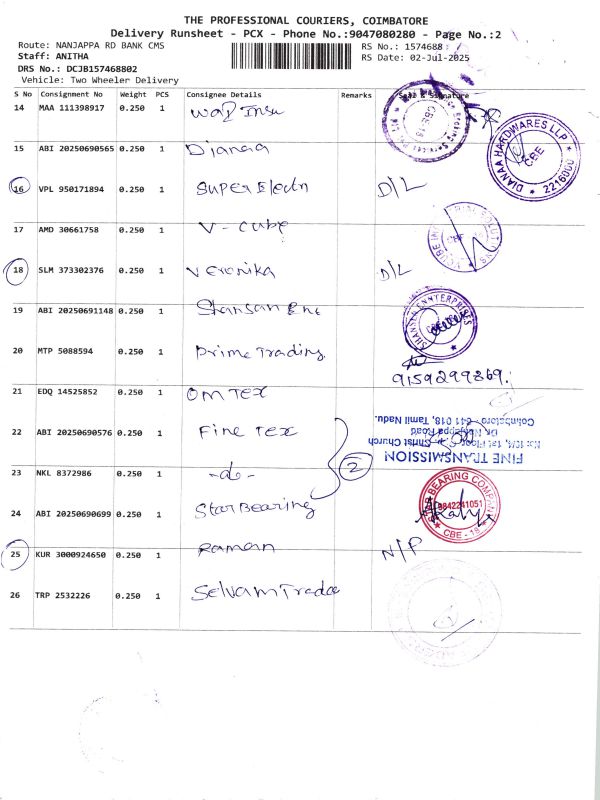 THE PROFESSIONAL COURIERS, COIMBATORE
Delivery Runsheet - PCX - Phone No.:9047080280 - Page No.:2
Route: NANJAPPA RD BANK CMS
RS No.: 1574688
Staff: ANITHA
RS Date: 02-Jul-2025
DRS No.: DCJB157468802
Vehicle: Two Wheeler Delivery
S No Consignment No Weight PCS Consignee Details Remarks Seal & Signature
14 MAA 111398917 0.250 1
15 ABI 20250690565 0.250 1 Dianaa
DIANAA HARDWARES LLP CBE 2216000
16 VPL 950171894 0.250 1 Super Electn D/L
17 AMD 30661758 0.250 1 V-cube
18 SLM 373302376 0.250 1 Veronika D/L
19 ABI 20250691148 0.250 1 Shansan Ent
20 MTP 5088594 0.250 1 Prime Trading
9159299869.
21 EDQ 14525852 0.250 1 OM TEX
22 ABI 20250690576 0.250 1 Fine Tex
FINE TRANSMISSION
1st Floor, Christ Church
Dr. Nanjappa Road
Coimbatore - 641 018, Tamil Nadu.
23 NKL 8372986 0.250 1 -do-
2
24 ABI 20250690699 0.250 1 Star Bearing
STAR BEARING COMPANY 9842241051 CBE - 18
25 KUR 3000924650 0.250 1 Raman N/P
26 TRP 2532226 0.250 1 Selvam Trade